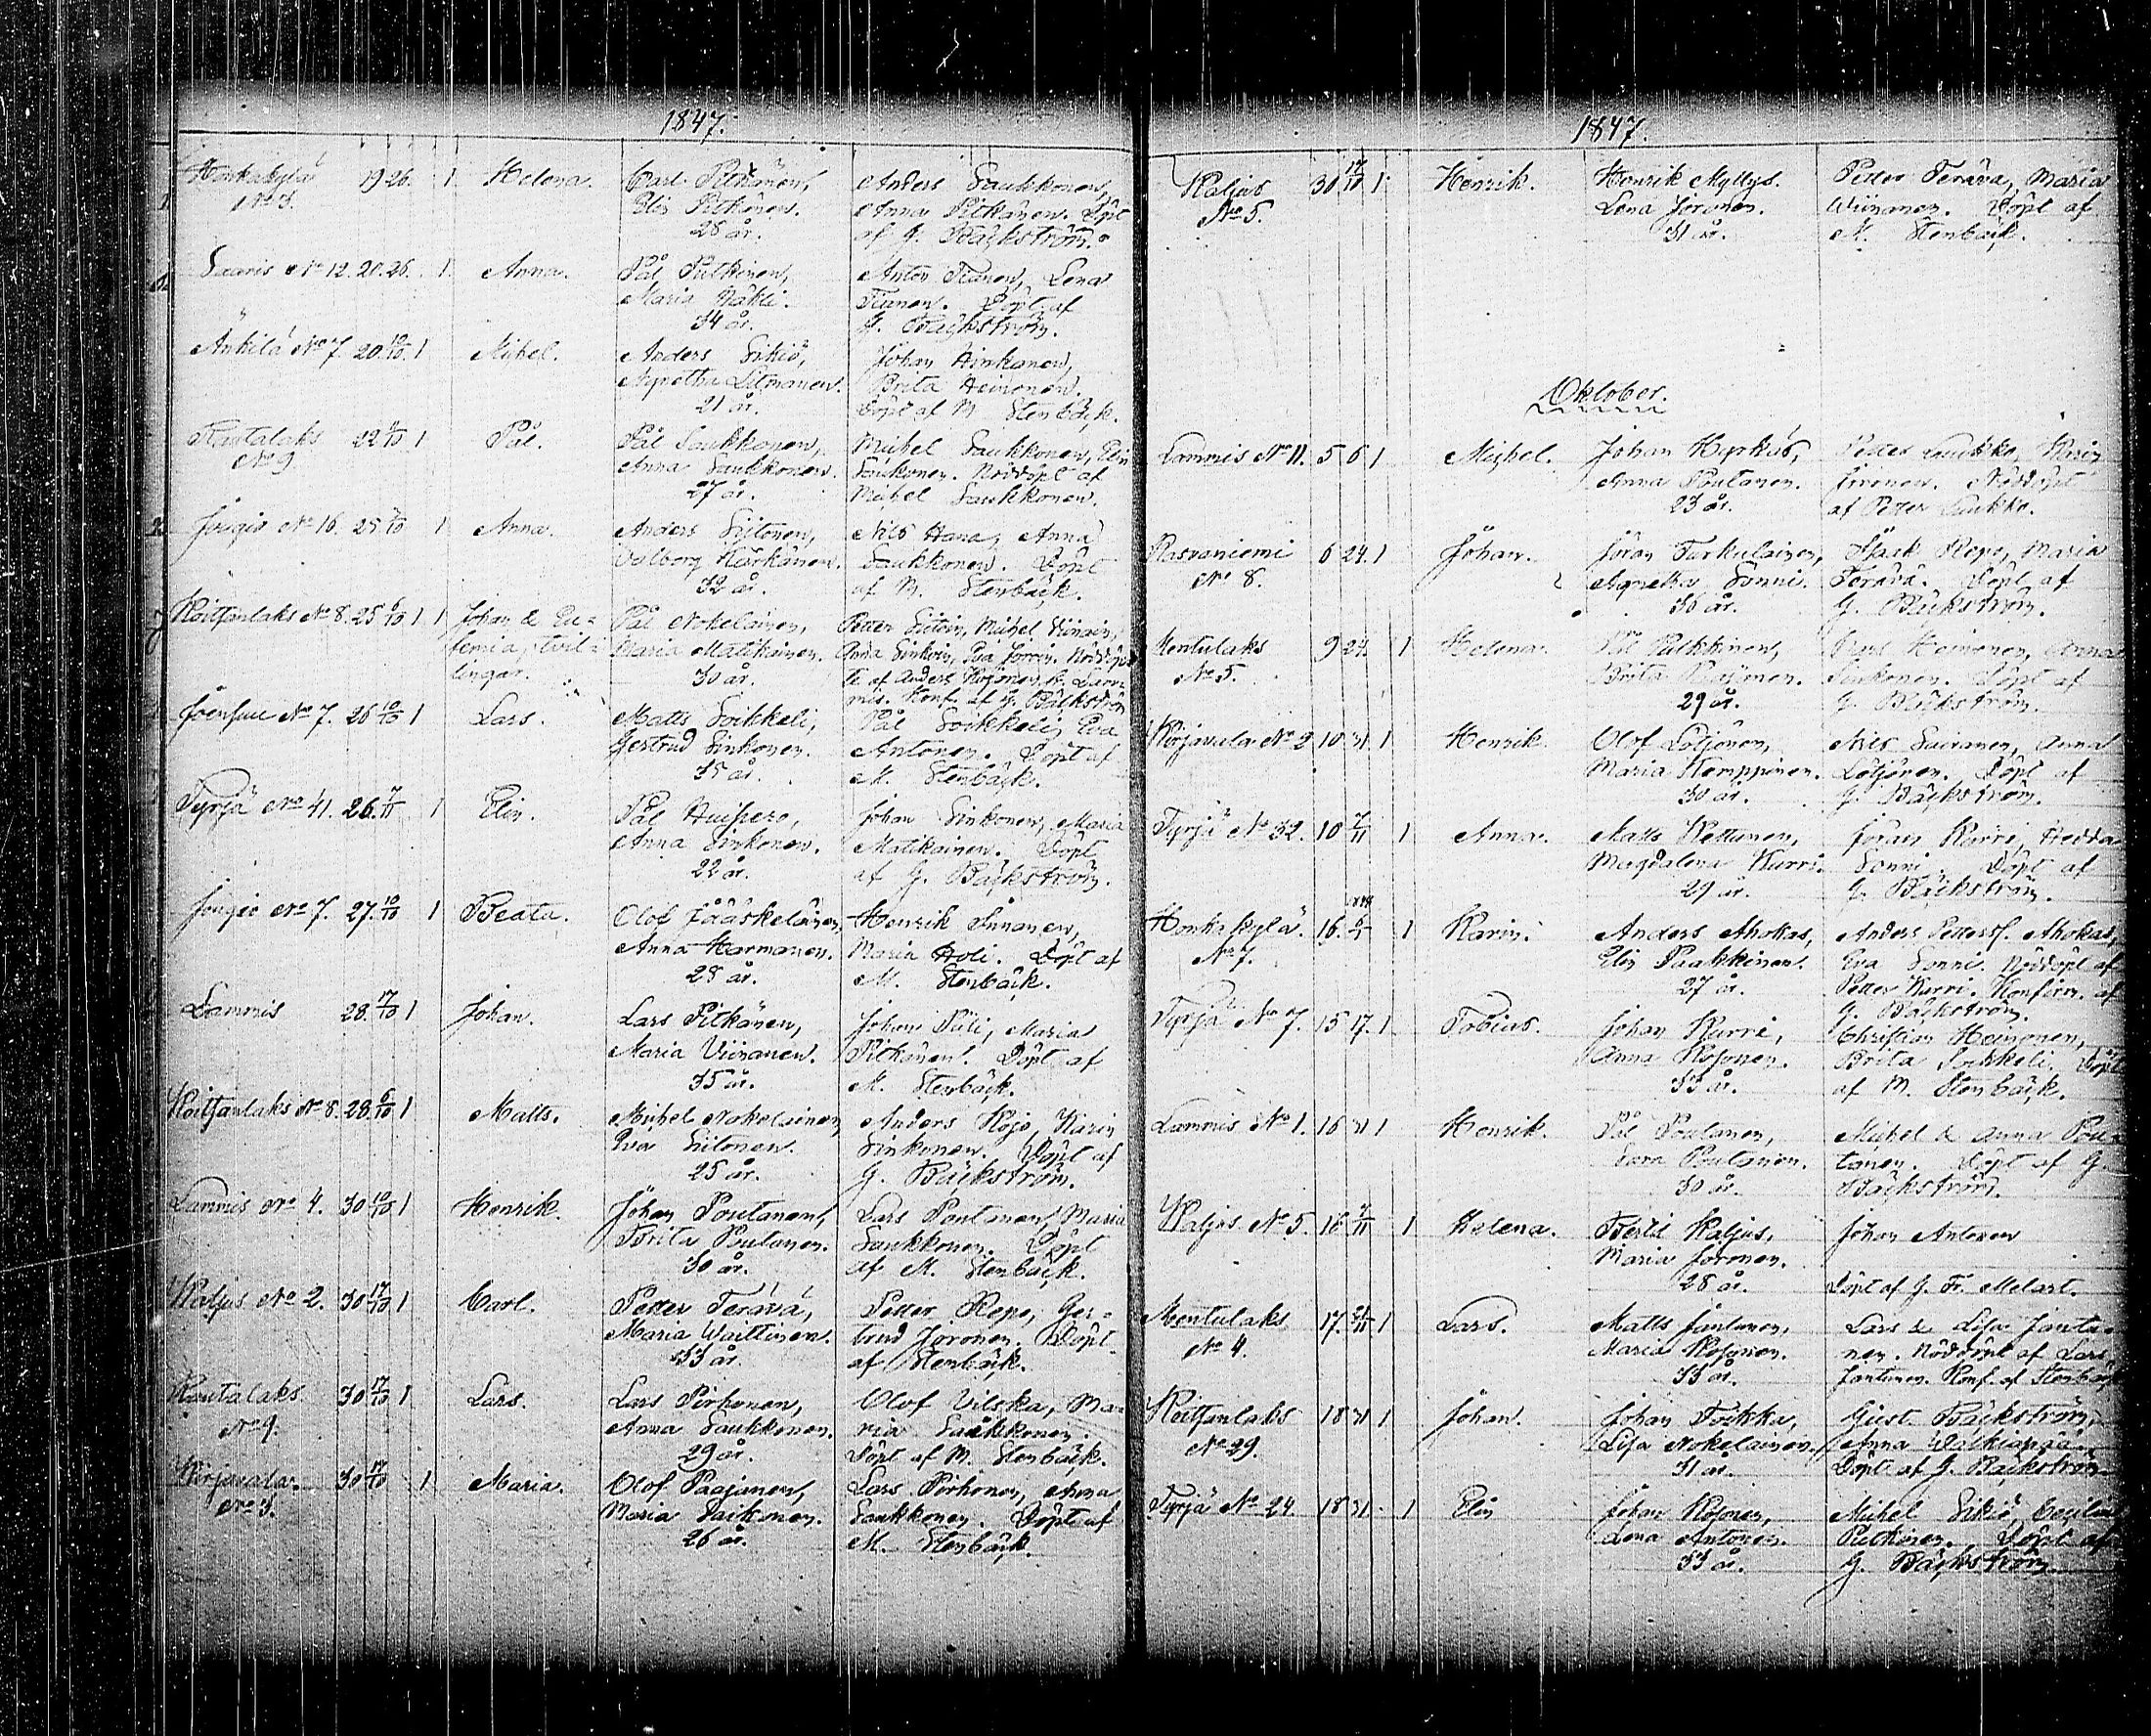 1847.
Honkakylä 19 26. 1. Helena. Carl Pitkänen, Anders Saukkonen,
No 3. Elin Pitkänen. Anna Pitkänen. Döpt
28 år. af G. Bäckström.
Saaris No 12. 20. 26. 1. Anna. Pål Pulkinen, Anton Tianen, Lena
Maria Näkki. Tianen. Döpt af
34 år. G. Bäckström.
Änkilä No 7. 20. 10/10. 1 Mihel. Anders Sikiö, Johan Hinkanen,
Agnetha Litmanen. Brita Heinonen.
21 år. Döpt af M. Stenbäck.
Rautalaks 22 /10 1 Pål. Pål Saukkonen, Mihel Saukkonen, Elin
No 9 Anna Saukkonen. Saukonen. Nöddöpt af
27 år. Mihel Saukkonen.
Jougio No 16. 25 /10 1 Anna. Anders Siitonen, Nils Hana, Anna
Valborg Härkänen. Saukkonen. Döpt
32 år. af M. Stenbäck.
Koitsanlaks No 8. 25 6/10 1 1 Johan & Eu= Pål Nokelainen, Petter Siitoin, Mihel Viinain,
femia, tvil= Maria Matikainen. Anna Sinkoin, Eva Jorrin. Nöddöp=
lingar. 30 år. te af Anders Kojonen, fr. Lam=
mis. Konf. af G. Bäckström
Joensuu No 7. 26 10/10 1 Lars. Matts Soikkeli, Pål Soikkeli, Eva
Gertrud Sinkonen. Antonen. Döpt af
35 år. M. Stenbäck.
Tyrjä No 41. 26. 7/11 1 Elin. Pål Huispero, Johan Sinkonen, Maria
Anna Sinkonen. Matikainen. Döpt
22 år. af G. Bäckström.
Jougio No 7. 27. 10/10 1 Beata. Olof Jääskeläinen, Henrik Innanen,
Anna Harmanen. Maria Holi. Döpt af
28 år. M. Stenbäck.
Lammis 28. 17/10 1 Johan. Lars Pitkänen, Johan Piili, Maria
Maria Viinanen. Pitkänen. Döpt af
35 år. M. Stenbäck.
Koitsanlaks No 8. 28. 6/10 1 Matts. Mihel Nokelainen, Anders Kojo, Karin
Eva Siitonen. Sinkonen. Döpt af
25 år. G. Bäckström.
Lammis No 4. 30 10/10 1 Henrik. Johan Poutanen, Lars Poutanen, Maria
Brita Poutanen. Saukkonen. Döpt
30 år. af M. Stenbäck.
Kaljus No 2. 30 17/10 1 Carl. Petter Terävä, Petter Repo, Ger=
Maria Waittinen. trud Joronen. Döpt
33 år. af Stenbäck.
Rautalaks 30 17/10 1 Lars. Lars Pirhonen, Olof Vilska, Ma=
No 9. Anna Saukkonen. ria Saukkonen.
29 år. Döpt af M. Stenbäck.
Kirjavala 30 17/10 1 Maria. Olof Paajanen, Lars Pirhonen, Anna
No 3. Maria Saikonen. Saukkonen. Döpt af
26 år. M. Stenbäck.
1847.
Kaljus 30 17/10 1 Henrik. Henrik Myllys. Petter Terävä, Maria
No 5. Lena Joronen. Wiinanen. Döpt af
31 år. M. Stenbäck.
Oktober.
Lammis No 11. 5 6 1 Mihel. Johan Hyrkäs, Petter Laukka, Karin
Anna Poutanen. Jrronen. Nöddöpt
23 år. af Petter Laukka.
Rasvaniemi 6 24. 1 Johan. Jöran Turkulainen, Isaak Repo, Maria
No 8. Agnetha Sonni. Terävä. Döpt af
36 år. G. Bäckström.
Mentulaks 9 24. 1 Helena. Pål Pulkkinen, Heinonen, Anna
No 5. Brita Sinkonen. Döpt af
29 år. G. Bäckström.
Kirjavala No 2 10 31 1 Henrik. Olof Lötjönen, Nils Sairanen, Anna
Maria Kemppinen. Lötjönen. Döpt af
30 år. G. Bäckström.
Tyrjä No 32. 10 7/11 1 Anna. Matts Kettunen, Jöran Kurri, Hedda
Magdalena Kurri. Sonni. Döpt af
29 år. G. Bäckström.
Honkakylä. 16. 1 Karin. Anders Ahokas, Anders Petterss. Ahokas,
No 7. Elin Paakkinen. Eva Sonni. Nöddöpt af
27 år. Petter Kurri. Konfirm. af
G. Bäckström.
Tyrjä No 7. 15 17. 1 Tobias. Johan Kurri, Christian Heinonen,
Anna Kojonen. Brita Soikkeli. Döpt
33 år. af M. Stenbäck.
Lammis No 1. 16 31 1 Henrik. Pål Poutanen, Mihel & Anna Pou=
Poutanen. tanen. Döpt af G.
30 år. Bäckström.
Kaljus No 5. 16 7/11 1 Helena. Bertil Kaljus, Johan Antonen
Maria Joronen.
28 år. Döpt af G. Fr. Melart.
Mentulaks 17. 21/11 1 Lars. Matts Jantunen, Lars & Lisa Jantu=
No 4. Maria Kojonen. nen. Nöddöpt af Lars
33 år. Jantunen. Konf. af Stenbäck
Koitsanlaks 18 31 1 Johan. Johan Toikka, Gust. Bäckström,
No 29. Lisa Nokelainen. Anna
31 år. Döpt af G. Bäckström
Tyrjä No 24. 18 31. 1 Elin Johan Kojonen, Mihel Sikiö, Cecilia
Lena Antonen. Pulkinen. Döpt af
33 år. G. Bäckström.